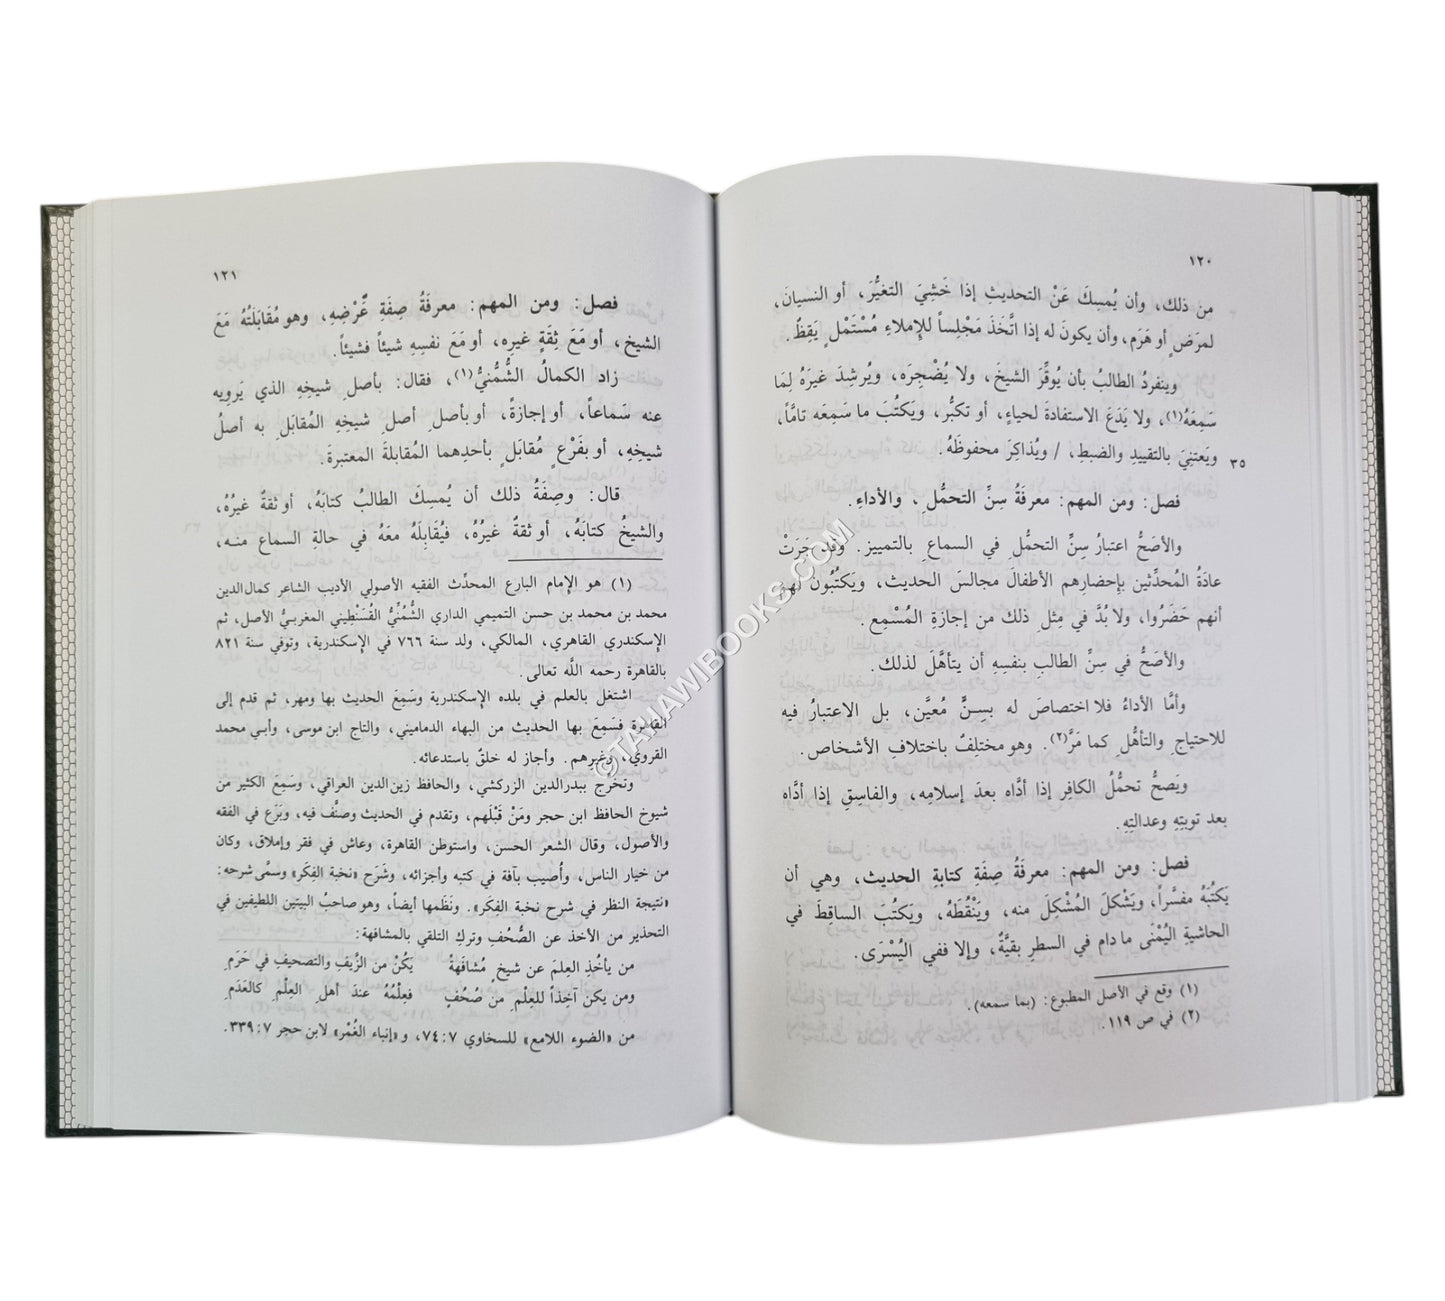 ١٢٠
من ذلك، وأن يُمسِكَ عَنْ التحديثِ إذا خَشِيَ التغيُّرَ، أو النسيانَ،
لمرَضٍ أو هَرَم، وأن يكونَ له إذا اتَّخَذَ مَجْلِساً للإِملاءِ مُسْتَمْلٍ يَقِظٌ.
وينفردُ الطالبُ بأن يُوقِّرَ الشيخَ، ولا يُضْجِرَه، ويُرشِدَ غيرَهُ لِمَا
سَمِعَهُ(١)، ولا يَدَعَ الاستفادةَ لحياءٍ، أو تكبُّر، ويَكتُبَ ما سَمِعَه تامًّا،
ويَعتنِيَ بالتقييدِ والضبطِ، / ويُذاكِرَ محفوظَهُ. ٣٥
فصل: ومن المهم: معرفةُ سِنِّ التحمُّلِ، والأداءِ.
والأصَحُّ اعتبارُ سِنِّ التحمُّلِ في السماعِ بالتمييز. وقد جَرَتْ
عادَةُ المُحدِّثين بإحضارِهم الأطفالَ مجالسَ الحديث، ويَكتُبُون لهم
أنهم حَضَرُوا، ولا بُدَّ في مِثلِ ذلك من إجازةِ المُسْمِع.
والأصَحُّ في سِنِّ الطالبِ بنفسِهِ أن يتأهَّلَ لذلك.
وأمَّا الأداءُ فلا اختصاصَ له بسِنٍّ مُعيَّن، بل الاعتبارُ فيه
للاحتياجِ والتأهُّلِ كما مَرَّ(٢). وهو مختلِفٌ باختلافِ الأشخاص.
ويَصحُّ تحمُّلُ الكافِرِ إذا أدَّاه بعدَ إسلامِه، والفاسِقِ إذا أدَّاه
بعد توبتِهِ وعدالتِهِ.
فصل: ومن المهم: معرفةُ صِفَةِ كتابةِ الحديث، وهي أن
يَكتُبَهُ مفسَّراً، ويَشْكلَ المُشْكِلَ منه، ويَنْقُطَهُ، ويَكتُبَ الساقِطَ في
الحاشيةِ اليُمْنَى ما دام في السطرِ بقيَّةٌ، وإلا ففي اليُسْرَى.
(١) وقع في الأصل المطبوع: (بما سمعه).
(٢) في ص ١١٩.
١٢١
فصل: ومن المهم: معرفَةُ صِفَةِ عَرْضِهِ، وهو مُقابَلَتُهُ مَعَ
الشيخ، أو مَعَ ثِقَةٍ غيرِه، أو مَعَ نفسِهِ شيئاً فشيئاً.
زاد الكمالُ الشُّمُنيُّ(١)، فقال: بأصلِ شيخِهِ الذي يَروِيه
عنه سَماعاً، أو إجازةً، أو بأصلِ أصلِ شيخِه المُقابَلِ به أصلُ
شيخِهِ، أو بفَرْعٍ مُقابَلٍ بأحدِهما المُقابلةَ المعتبرةَ.
قال: وصِفَةُ ذلك أن يُمسِكَ الطالبُ كتابَهُ، أو ثقةٌ غيرُهُ،
والشيخُ كتابَهُ، أو ثقةٌ غيرُهُ، فيُقَابِلَهُ معَهُ في حالةِ السماع منـه،
(١) هو الإِمام البارع المحدِّث الفقيه الأصولي الأديب الشاعر كمال الدين
محمد بن محمد بن حسن التميمي الداري الشُّمُنِّيُّ القُسَنْطِيني المغربيُّ الأصل، ثم
الإِسكندري القاهري، المالكي، ولد سنة ٧٦٦ في الإِسكندرية، وتوفي سنة ٨٢١
بالقاهرة رحمه اللَّه تعالى.
اشتغل بالعلم في بلده الإِسكندرية وسَمِعَ الحديث بها ومهر، ثم قدم إلى
القاهرة فسَمِعَ بها الحديث من البهاء الدماميني، والتاج ابن موسى، وأبي محمد
القروي، وغيرهم. وأجاز له خلقٌ باستدعائه.
وتخرَّج ببدر الدين الزركشي، والحافظ زين الدين العراقي، وسَمِعَ الكثير من
شيوخ الحافظ ابن حجر ومَنْ قَبْلَهم، وتقدم في الحديث وصنَّف فيه، وبَرَع في الفقه
والأصول، وقال الشعر الحسن، واستوطن القاهرة، وعاش في فقر وإملاق، وكان
من خيار الناس، وأُصيب بآفة في كتبه وأجزائه، وشَرَح «نخبة الفِكَر» وسمَّى شرحه:
«نتيجة النظر في شرح نخبة الفِكَر». ونَظَمها أيضاً، وهو صاحبُ البيتين اللطيفين في
التحذير من الأخذ عن الصُّحُفِ وتركِ التلقي بالمشافهة:
من يأخُذِ العِلمَ عن شيخٍ مُشافَهةً يَكُنْ من الزَّيفِ والتصحيفِ في حَرَمِ
ومن يكن آخِذاً للعِلْمِ من صُحُفٍ فعِلْمُهُ عندَ أهلِ العِلْمِ كالعَدَمِ
من «الضوء اللامع» للسخاوي ٧: ٧٤، و«إنباء الغُمْر» لابن حجر ٧: ٣٣٩.
©TAHAWIBOOKS.COM